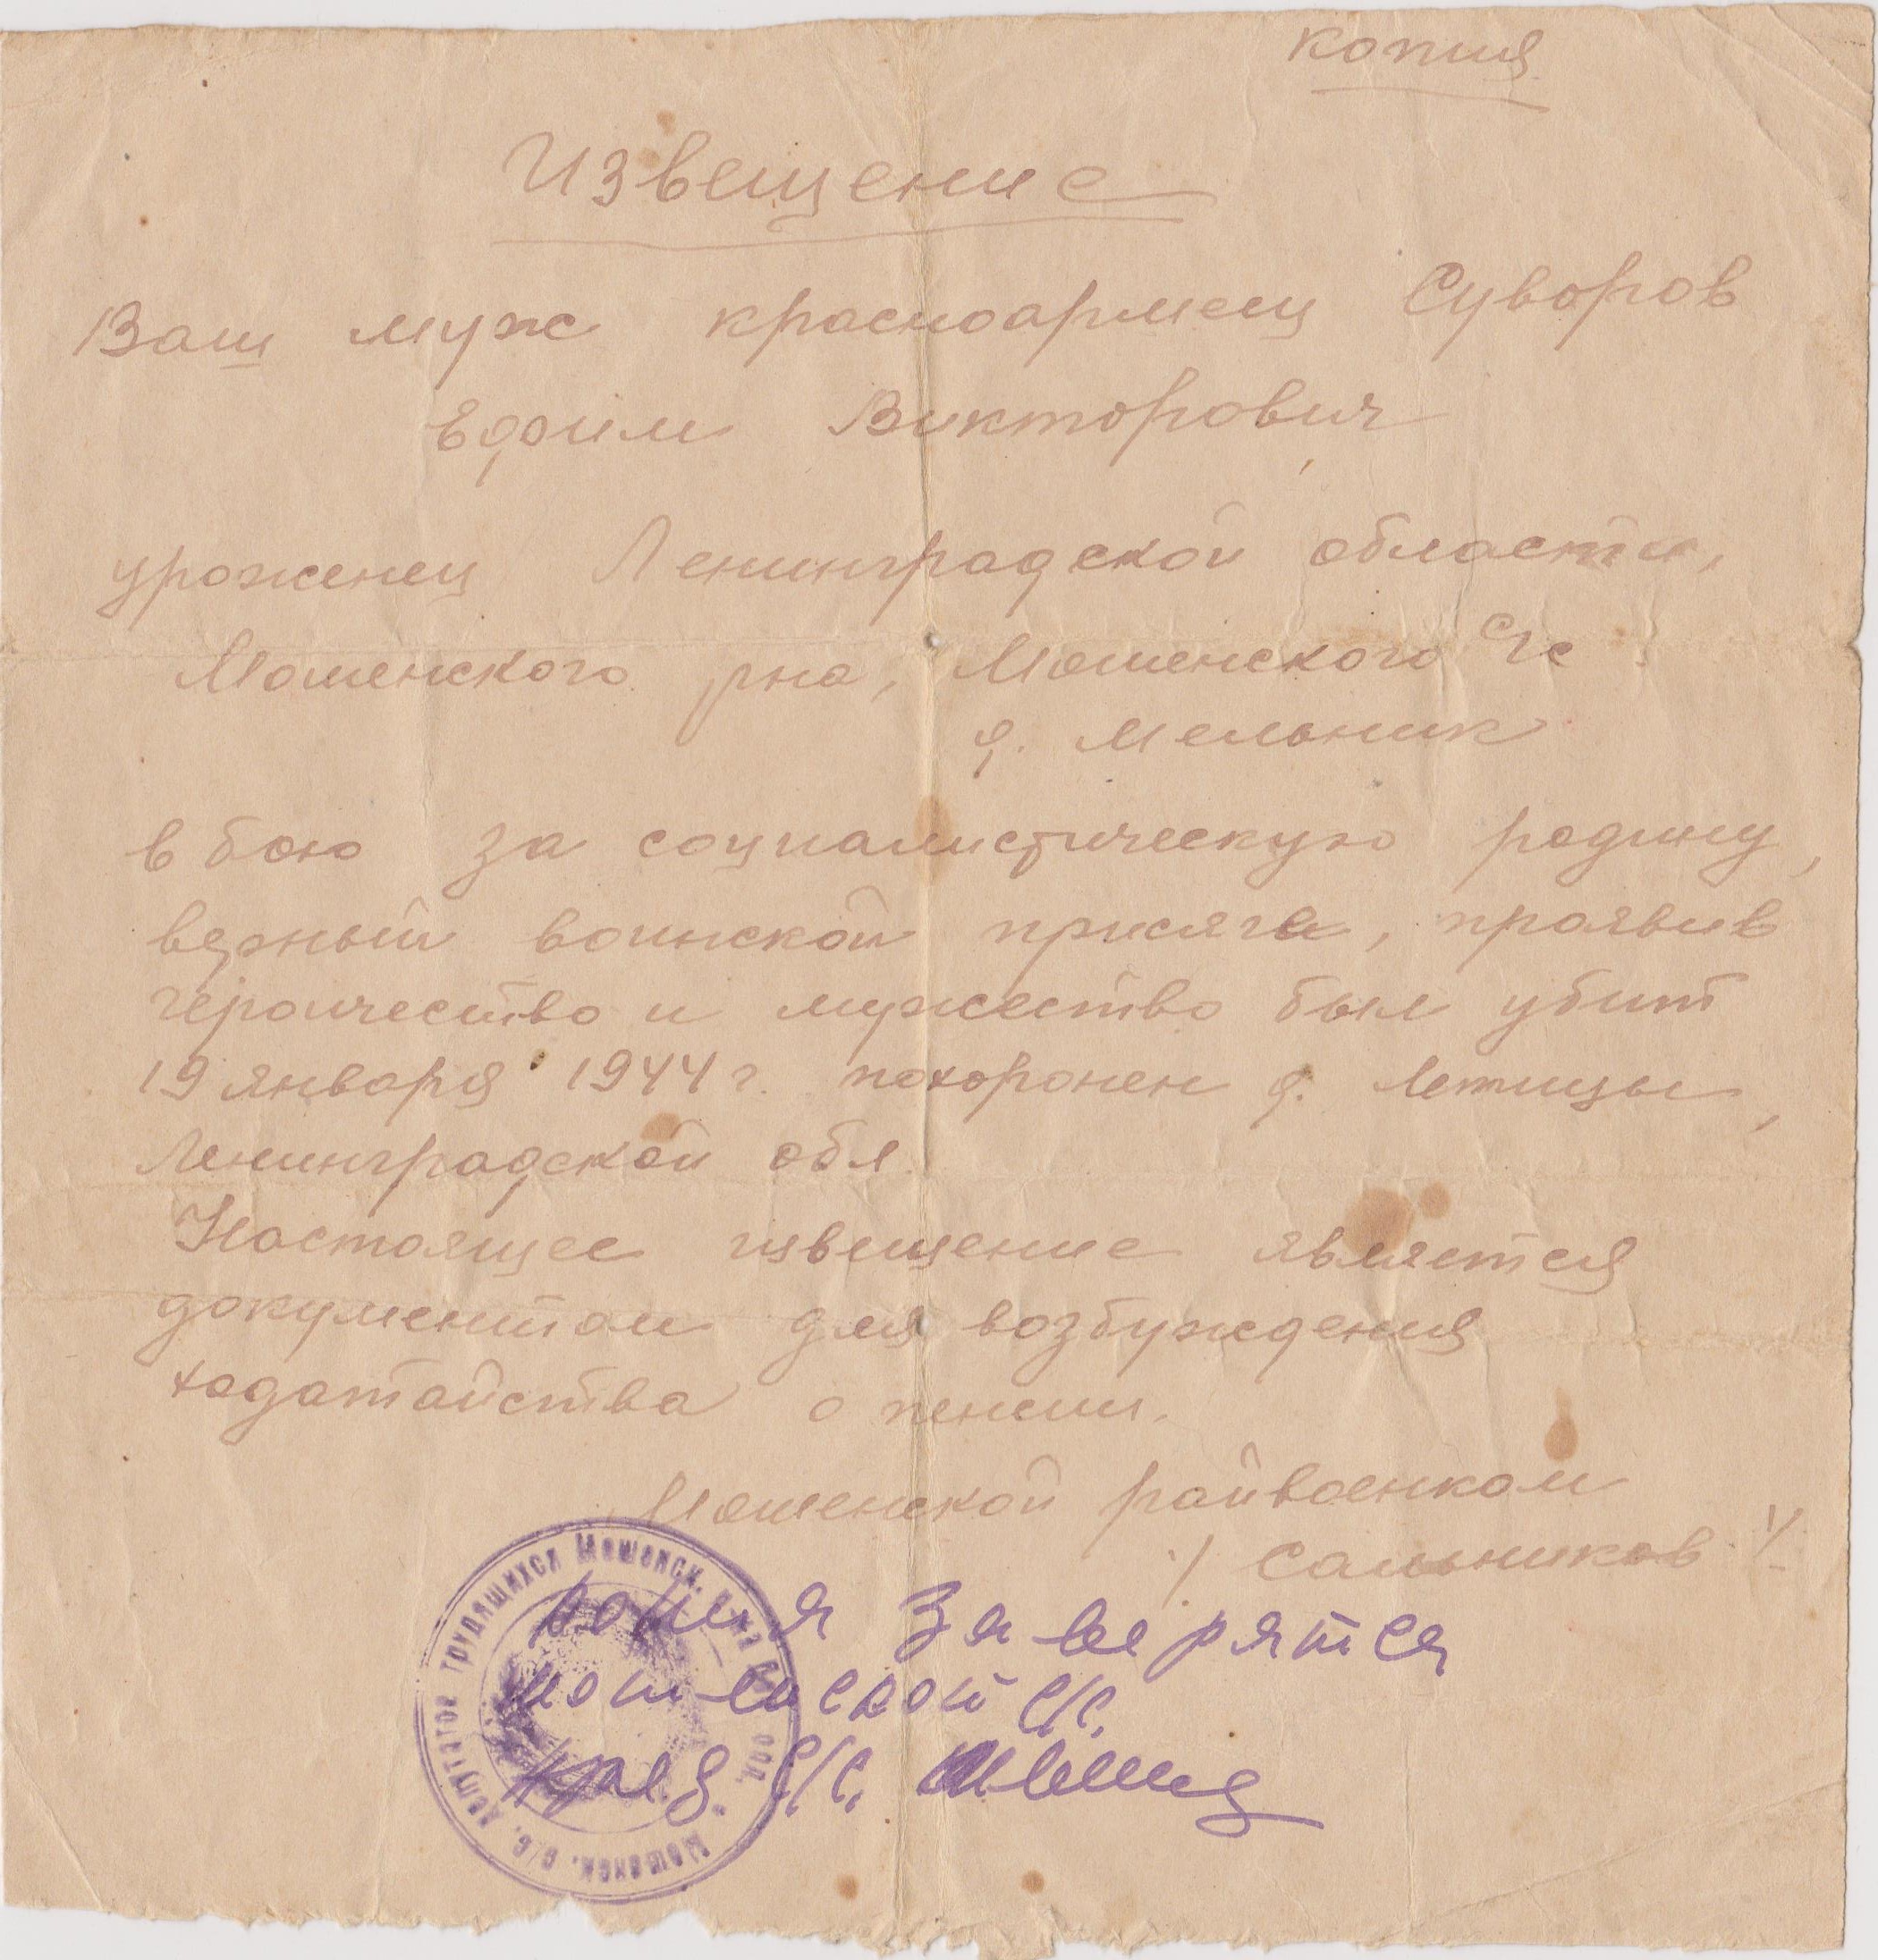 копия
Извещение
Ваш муж красноармеец Суворов
Ефим Викторович
уроженец Ленинградской области,
Мошенского рна, Мошенского с/с
д. Мельник
в бою за социалистическую родину,
верный воинской присяге, проявив
героичество и мужество был убит
19 января 1944 г. похоронен д. Летицы,
Ленинградской обл.
Настоящее извещение является
документом для возбуждения
ходатайства о пенсии.
Мошенской райвоенком
/ Сальников /
копия заверятся
мошенской с/с.
пред. с/с.
Мошенск. с/с. депутатов трудящихся Мошенск. р-на обл.